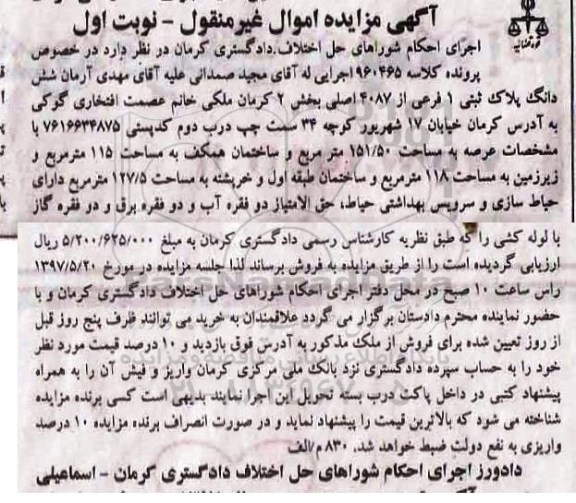 آگهی مزایده اموال غیرمنقول - نوبت اول
اجرای احکام شوراهای حل اختلاف.دادگستری کرمان در نظر دارد در خصوص
پرونده کلاسه ۹۶۰۴۶۵اجرایی له آقای مجید صمدانی علیه آقای مهدی آرمان شش
دانگ پلاک ثبتی ۱ فرعی از ۴۰۸۷ اصلی بخش ۲ کرمان ملکی خانم عصمت افتخاری گوکی
به آدرس کرمان خیابان ۱۷ شهریور کوچه ۳۴ سمت چپ درب دوم کدپستی ۷۶۱۶۶۳۴۸۷۵ با
مشخصات عرصه به مساحت ۱۵۱/۵۰ متر مربع و ساختمان همکف به مساحت ۱۱۵ مترمربع و
زیرزمین به مساحت ۱۱۸ مترمربع و ساختمان طبقه اول و خرپشته به مساحت ۱۲۷/۵ مترمربع دارای
حیاط سازی و سرویس بهداشتی حیاط، حق الامتیاز دو فقره آب و دو فقره برق و دو فقره گاز
با لوله کشی را که طبق نظریه کارشناس رسمی دادگستری کرمان به مبلغ ۵/۲۰۰/۶۲۵/۰۰۰ ریال
ارزیابی گردیده است را از طریق مزایده به فروش برساند لذا جلسه مزایده در مورخ ۱۳۹۷/۵/۲۰
راس ساعت ۱۰ صبح در محل دفتر اجرای احکام شوراهای حل اختلاف دادگستری کرمان و با
حضور نماینده محترم دادستان برگزار می گردد علاقمندان به خرید می توانند ظرف پنج روز قبل
از روز تعیین شده برای فروش از ملک مذکور به آدرس فوق بازدید و ۱۰ درصد قیمت مورد نظر
خود را به حساب سپرده دادگستری نزد بانک ملی مرکزی کرمان واریز و فیش آن را به همراه
پیشنهاد کتبی در داخل پاکت درب بسته تحویل این اجرا نمایند بدیهی است کسی برنده مزایده
شناخته می شود که بالاترین قیمت را پیشنهاد نماید و در صورت انصراف برنده مزایده ۱۰ درصد
واریزی به نفع دولت ضبط خواهد شد. ۸۳۰ م/الف
دادورز اجرای احکام شوراهای حل اختلاف دادگستری کرمان - اسماعیلی